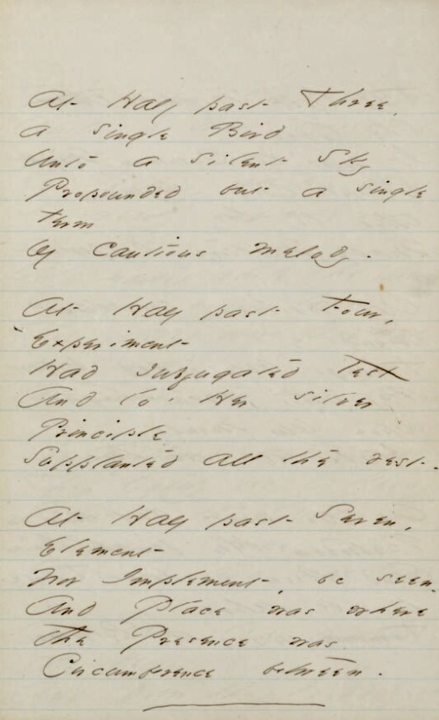 At Half past Three,
a single Bird
Unto a silent Sky
Propounded but a single
term
Of cautious melody.
At Half past Four,
Experiment
Had subjugated test
And lo, Her silver
Principle
Supplanted all the rest.
At Half past Seven,
Element
Nor Implement, be seen.
And Place was where
the Presence was
Circumference between.